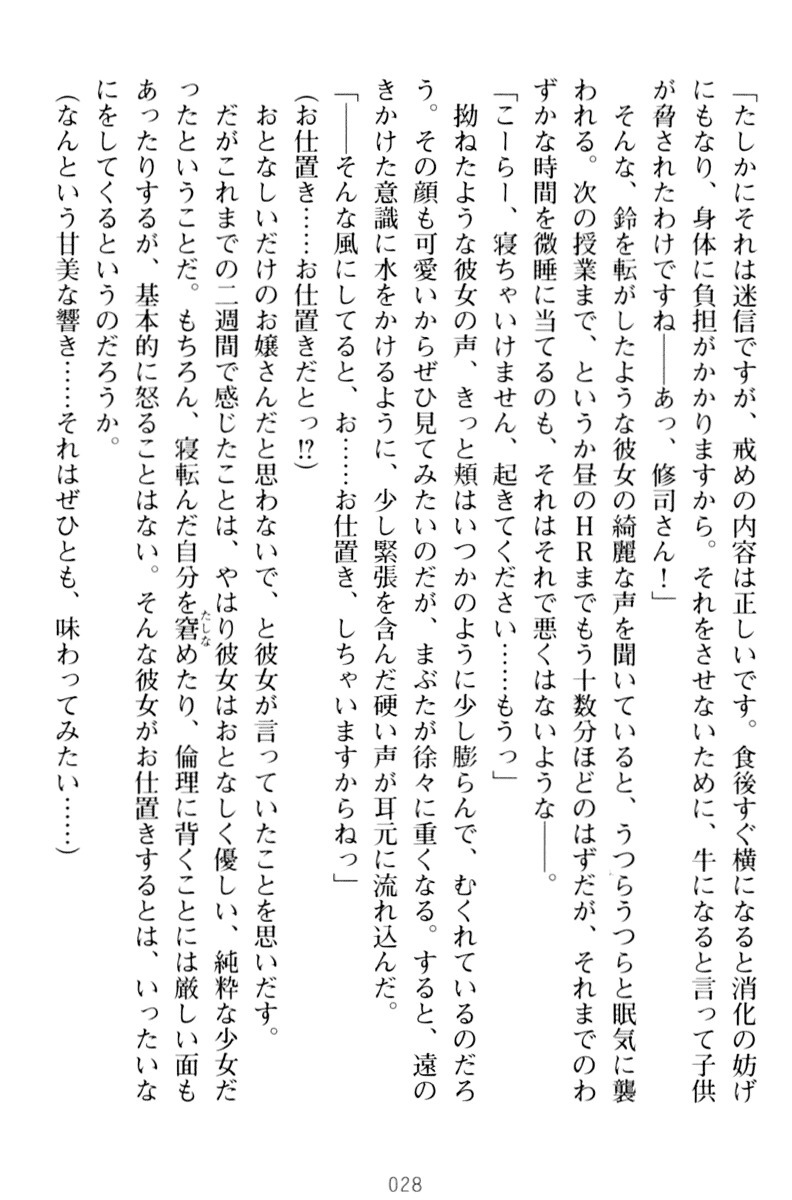 「たしかにそれは迷信ですが、戒めの内容は正しいです。食後すぐ横になると消化の妨げ
にもなり、身体に負担がかかりますから。それをさせないために、牛になると言って子供
が脅されたわけですね――あっ、修司さん！」
　そんな、鈴を転がしたような彼女の綺麗な声を聞いていると、うつらうつらと眠気に襲
われる。次の授業まで、というか昼のＨＲまでもう十数分ほどのはずだが、それまでのわ
ずかな時間を微睡に当てるのも、それはそれで悪くはないような――。
「こーらー、寝ちゃいけません、起きてください……もうっ」
　拗ねたような彼女の声、きっと頬はいつかのように少し膨らんで、むくれているのだろ
う。その顔も可愛いからぜひ見てみたいのだが、まぶたが徐々に重くなる。すると、遠の
きかけた意識に水をかけるように、少し緊張を含んだ硬い声が耳元に流れ込んだ。
「――そんな風にしてると、お……お仕置き、しちゃいますからねっ」
（お仕置き……お仕置きだとっ!?）
　おとなしいだけのお嬢さんだと思わないで、と彼女が言っていたことを思いだす。
　だがこれまでの二週間で感じたことは、やはり彼女はおとなしく優しい、純粋な少女だ
ったということだ。もちろん、寝転んだ自分を窘めたり、倫理に背くことには厳しい面も
たしな
あったりするが、基本的に怒ることはない。そんな彼女がお仕置きするとは、いったいな
にをしてくるというのだろうか。
（なんという甘美な響き……それはぜひとも、味わってみたい……）
028